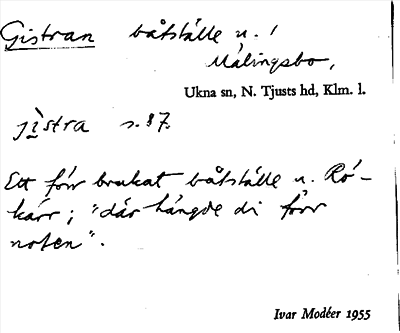 Gistran båtställe u. /
Målingsbo,
Ukna sn, N. Tjusts hd, Klm. l.
jìstra s. 87.
Ett förr brukat båtställe u. Rö-
kärr; "där hängde di förr
noten".
Ivar Modéer 1955